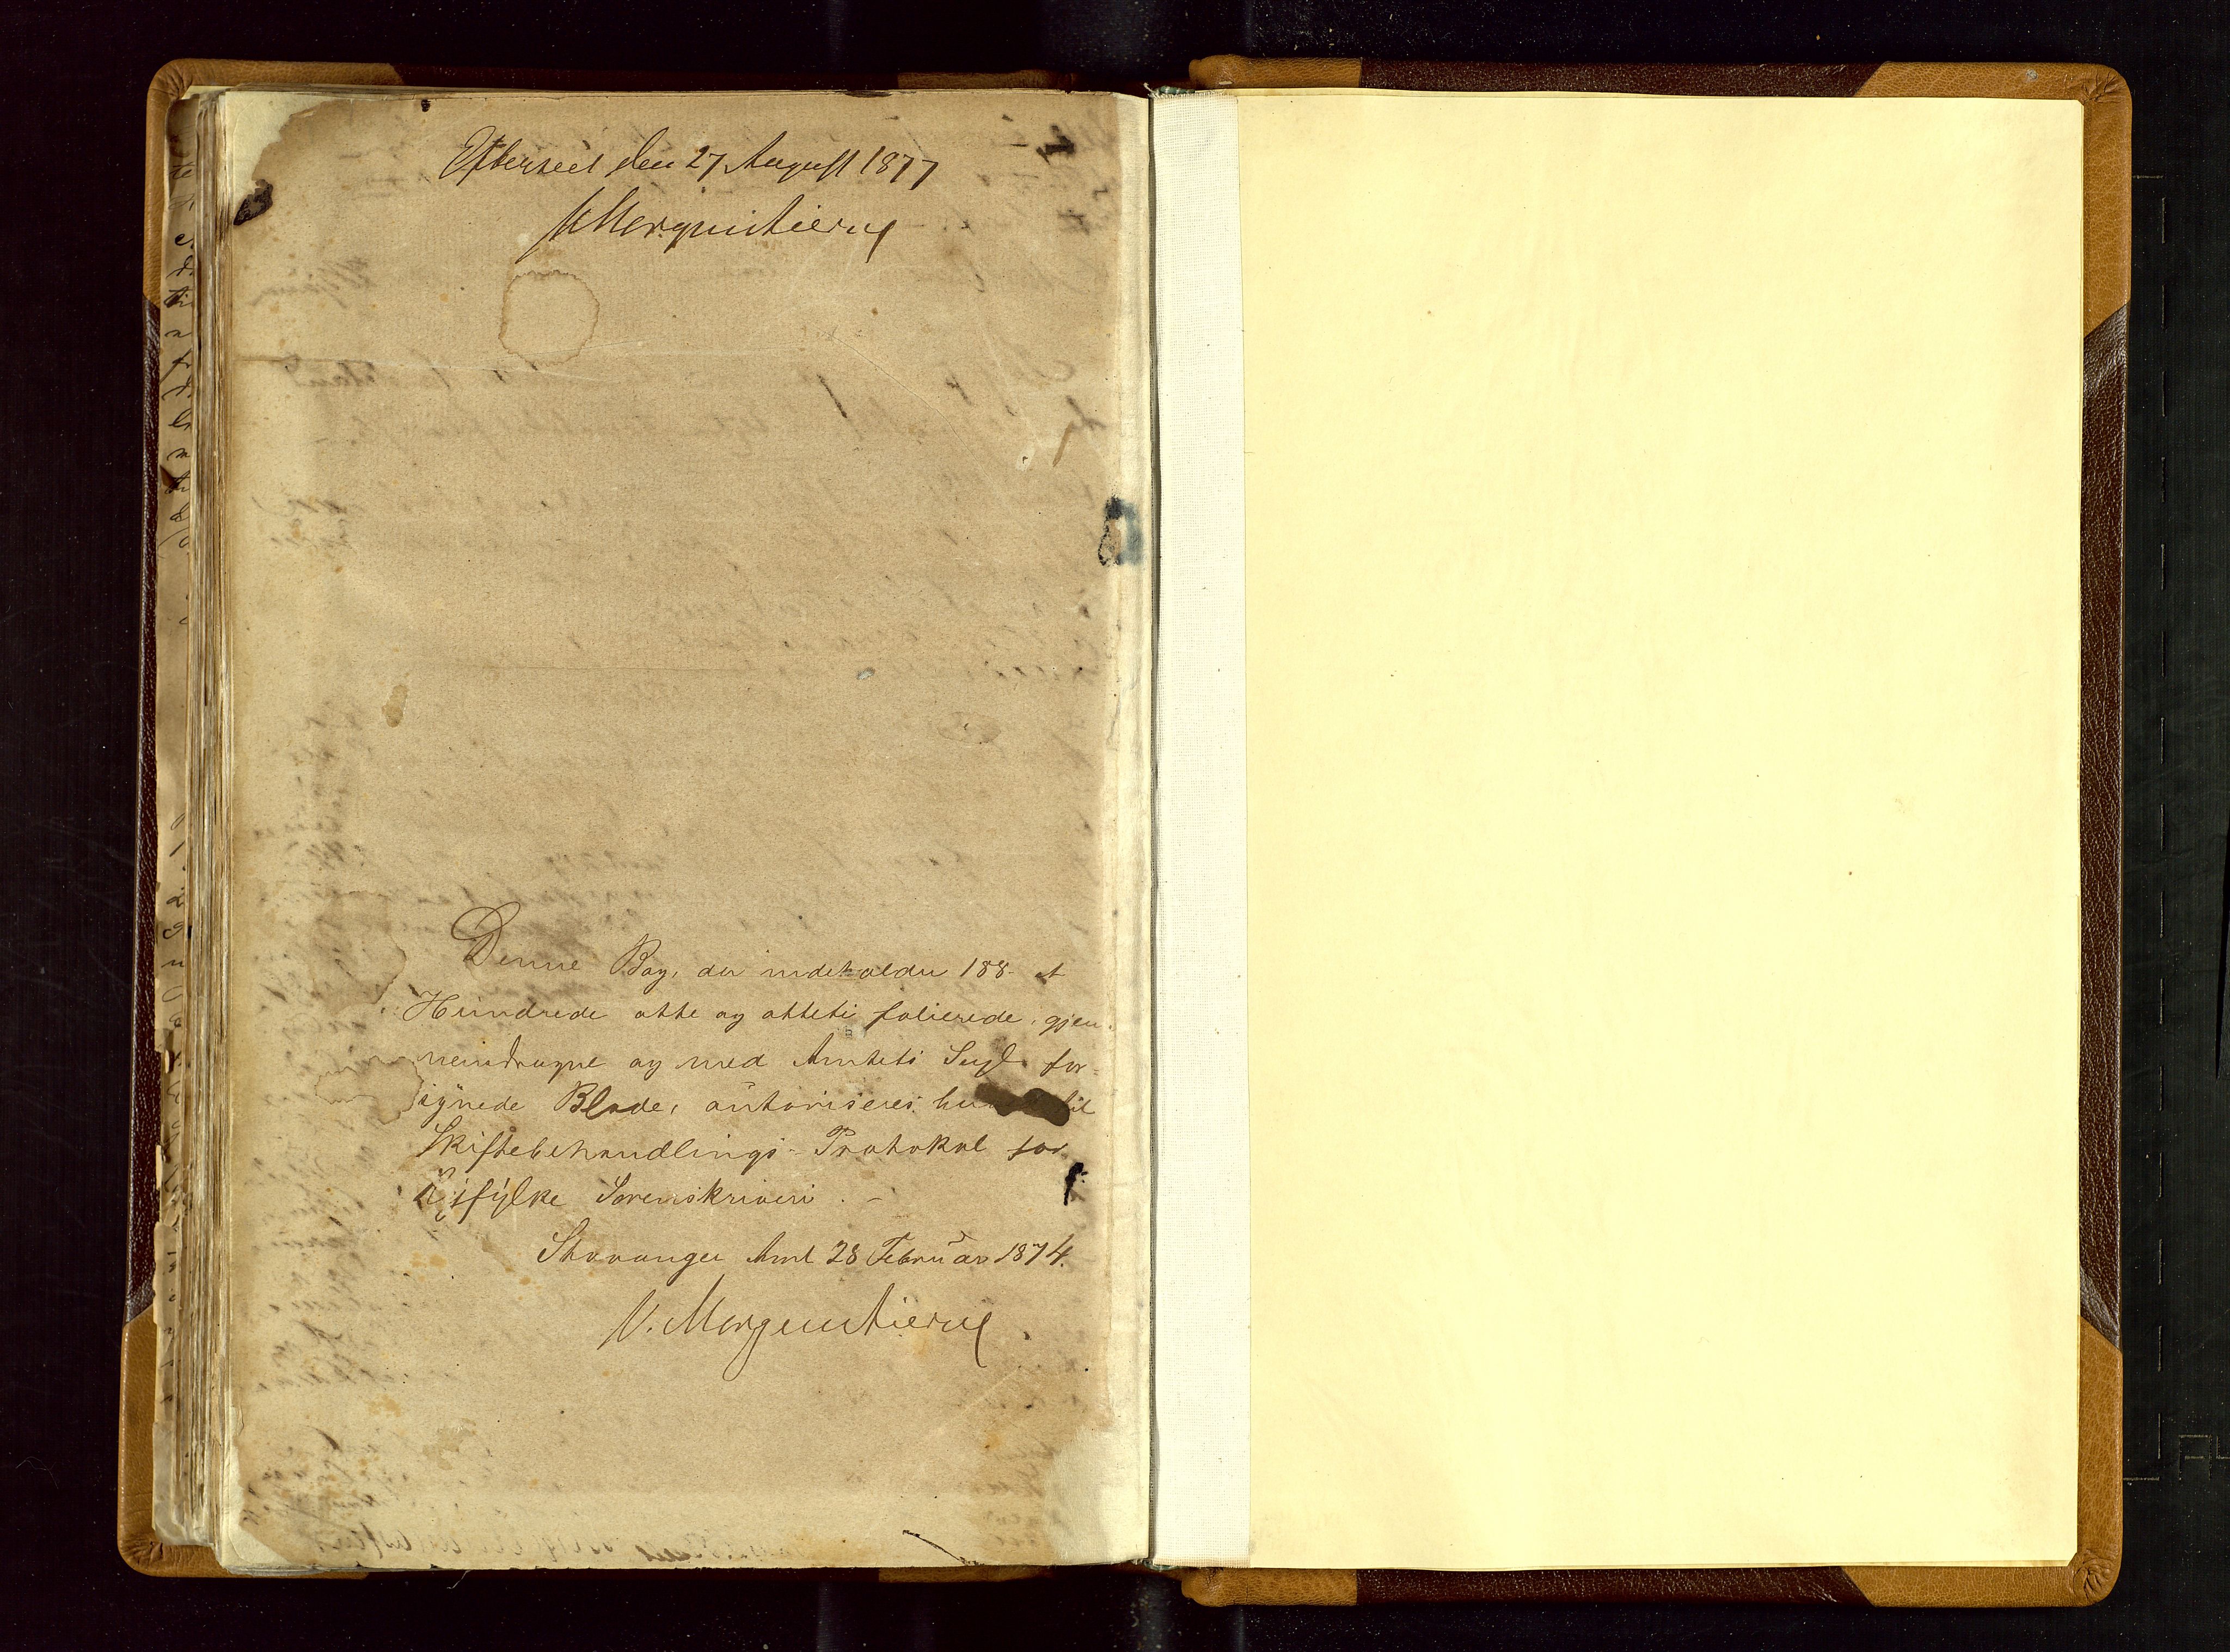 Efterseet den 27 August 1877
V Morgenstierne
Denne Bog, der indeholder 188 - et
Hundrede otte og otteti folierede, gjen-
nemdragne og med Amtets Segl for-
synede Blade, autoriseres til
Skiftebehandlings-Protokol for
Ryfylke Sorenskriveri. -
Stavanger Amt 28 Februar 1874.
V. Morgenstierne.